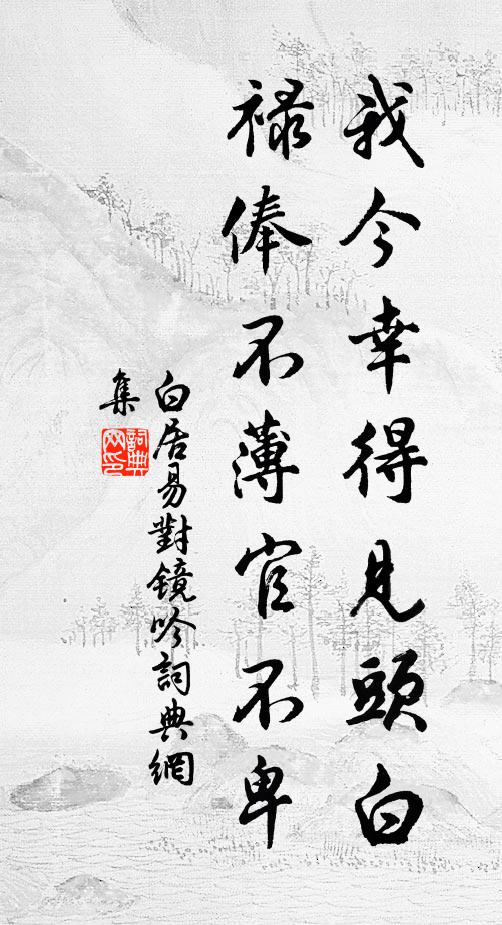 我今幸得見頭白
祿俸不薄官不卑
白居易對鏡吟詞典網
集
詞典
网印